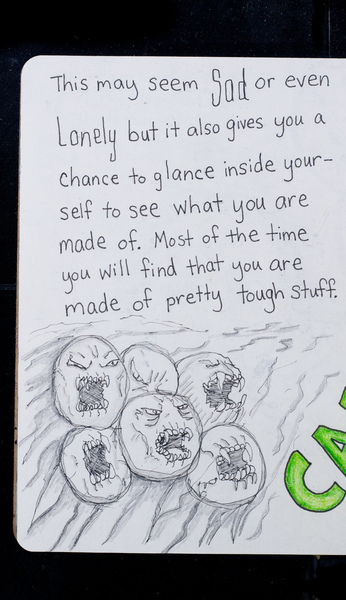 This may seem Sad or even
Lonely but it also gives you a
chance to glance inside your-
self to see what you are
made of. Most of the time
you will find that you are
made of pretty tough stuff.
CA